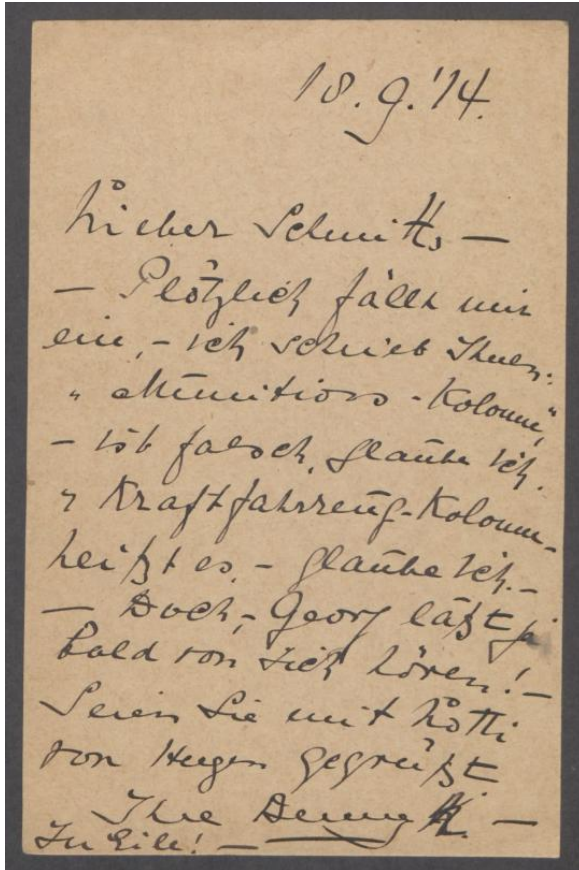 18.9.'14.
Lieber Schmitts —
— Plötzlich fällt mir
ein, – ich schrieb Ihnen:
"Munitions-Kolonne,"
– ist falsch, glaube ich.
"Kraftfahrzeug-Kolonne
heißt es – glaube ich. –
— Doch, – Georg läßt ja
bald von sich hören! –
Seien Sie mit Lotti
von Herzen gegrüßt
Ihre K. —
In Eile! —